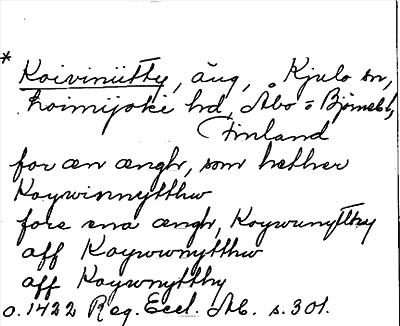 * Koiviniitty, äng, Kjulo sn,
Loimijoki hd, Åbo o Björneb,
Finland
for æn ængh, som hether
Koywinnytthw
fore ena ængh, Koywunytthy
aff Koywwnytthw
aff Koywnytthy
o. 1422 Reg. Eccl. Ab. s. 301.